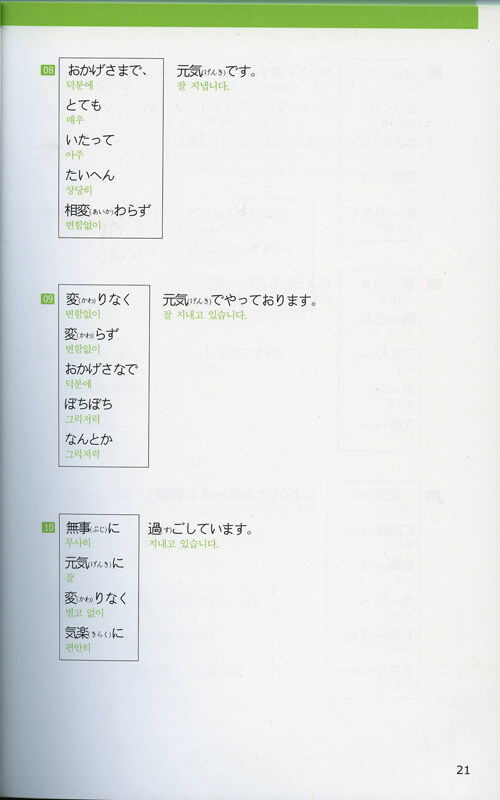 08 おかげさまで、 元気(げんき)です。
덕분에 잘 지냅니다.
とても
매우
いたって
아주
たいへん
상당히
相変(あいか)わらず
변함없이
09 変(かわ)りなく 元気(げんき)でやっております。
변함없이 잘 지내고 있습니다.
変(かわ)らず
변함없이
おかげさなで
덕분에
ぼちぼち
그럭저럭
なんとか
그럭저럭
10 無事(ぶじ)に 過(す)ごしています。
무사히 지내고 있습니다.
元気(げんき)に
잘
変(かわ)りなく
별고 없이
気楽(きらく)に
편안히
21